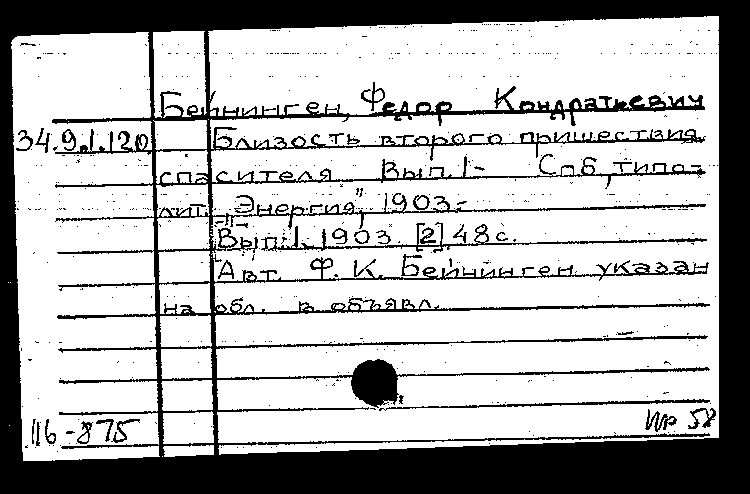 Бейнинген, Федор Кондратьевич
34.9.1.120 Близость второго пришествия
спасителя. Вып.1- Спб, типо-
лит. "Энергия", 1903.-
Вып.1. 1903. [2], 48 с.
Авт. Ф. К. Бейнинген указан
на обл. в объявл.
116-875
Пр 58